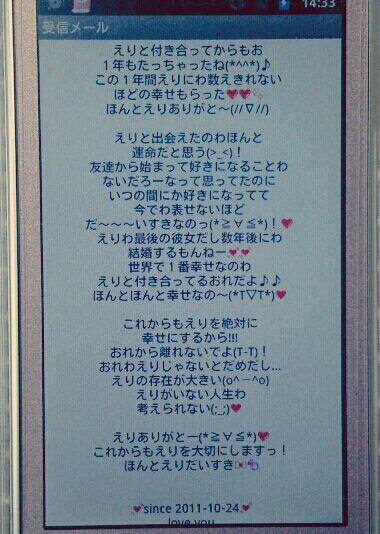 14:33
受信メール
えりと付き合ってからもお
1年もたっちゃったね(*^^*)♪
この1年間えりにわ数えきれない
ほどの幸せもらった💗💗✨
ほんとえりありがと〜(//∇//)
えりと出会えたのわほんと
運命だと思う(>_<)！
友達から始まって好きになることわ
ないだろーなって思ってたのに
いつの間にか好きになってて
今でわ表せないほど
だ〜〜〜いすきなのっ(*≧∀≦*)！💗
えりわ最後の彼女だし数年後にわ
結婚するもんねー💕
世界で1番幸せなのわ
えりと付き合ってるおれだよ♪♪
ほんとほんと幸せなの〜(*T▽T*)💗
これからもえりを絶対に
幸せにするから!!!
おれから離れないでよ(T-T)！
おれわえりじゃないとだめだし...
えりの存在が大きい(o^－^o)
えりがいない人生わ
考えられない(;_;)💗
えりありがとー(*≧∀≦*)💗
これからもえりを大切にしますっ！
ほんとえりだいすき
💕since 2011-10-24💕
love you